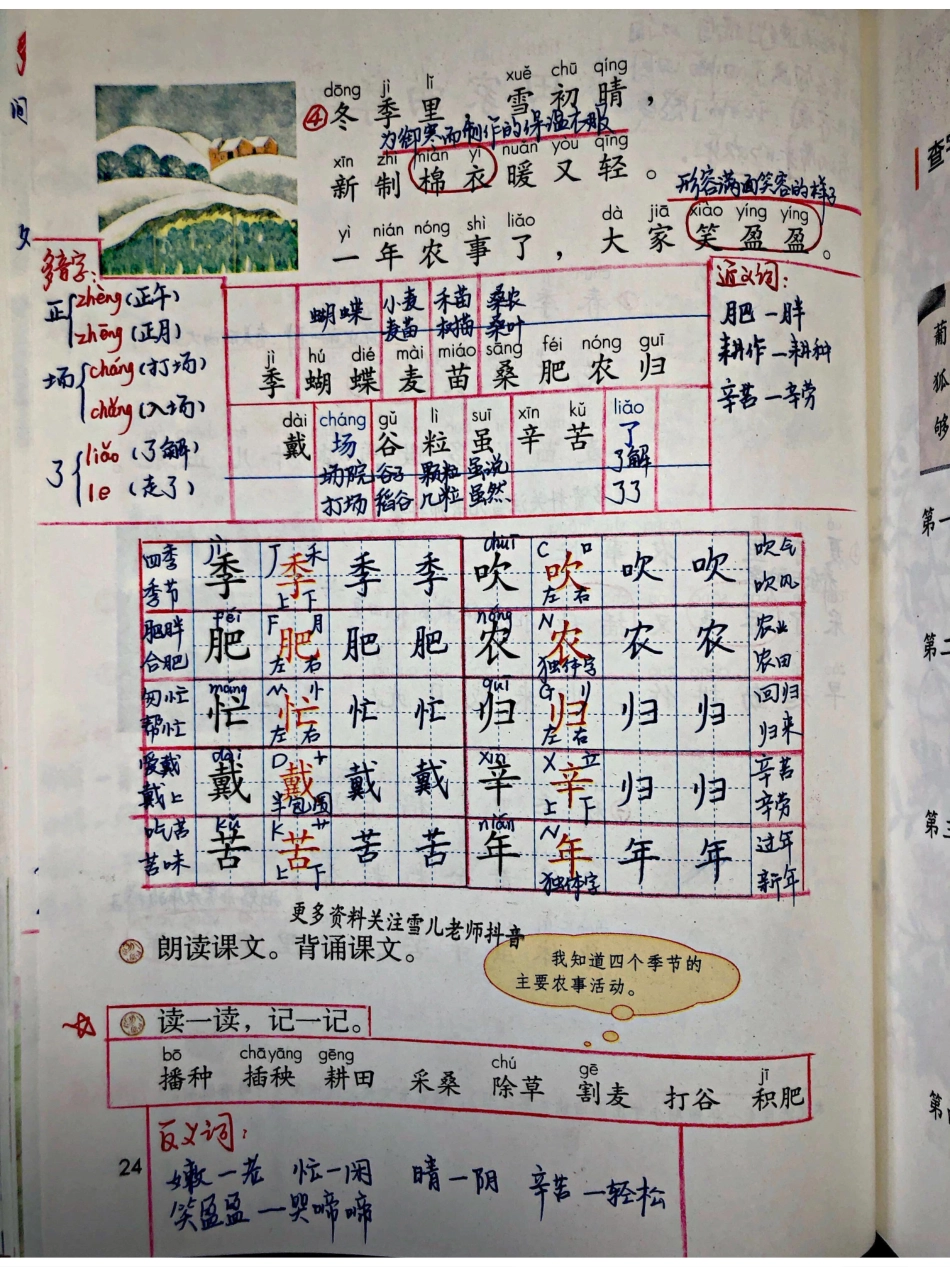 dōng jì lǐ xuě chū qíng
④冬季里，雪初晴，
为御寒而制作的保温衣服
xīn zhì mián yī nuǎn yòu qīng
新制棉衣暖又轻。
形容满面笑容的样子
yì nián nóng shì liǎo dà jiā xiào yíng yíng
一年农事了，大家笑盈盈。
多音字：
正 zhèng（正午）
zhēng（正月）
场 cháng（打场）
chǎng（入场）
了 liǎo（了解）
le（走了）
蝴蝶 小麦 禾苗 桑农
麦苗 树苗 桑叶
jì hú dié mài miáo sāng féi nóng guī
季 蝴 蝶 麦 苗 桑 肥 农 归
dài cháng gǔ lì suī xīn kǔ liǎo
戴 场 谷 粒 虽 辛 苦 了
场院 谷子 颗粒 虽说 了解
打场 稻谷 几粒 虽然 了了
近义词：
肥—胖
耕作—耕种
辛苦—辛劳
四季 季 J 禾 季 季 季 chuī 吹 C 口 吹 吹 吹 吹气
季节 上 下 左 右 吹风
肥胖 féi 肥 F 月 肥 肥 肥 nóng 农 N 农 农 农 农业
合肥 左 右 独体字 农田
匆忙 máng 忙 M 忄 忙 忙 忙 guī 归 G 归 归 归 回归
帮忙 左 右 左 右 归来
爱戴 dài 戴 D 戴 戴 戴 xīn 辛 X 立 辛 归 归 辛苦
戴上 半包围 上 下 辛劳
吃苦 kǔ 苦 K 艹 苦 苦 苦 nián 年 N 年 年 年 过年
苦味 上 下 独体字 新年
更多资料关注雪儿老师抖音
朗读课文。背诵课文。
我知道四个季节的
主要农事活动。
读一读，记一记。
bō chā yāng gēng chú gē jī
播种 插秧 耕田 采桑 除草 割麦 打谷 积肥
反义词：
嫩—老 忙—闲 晴—阴 辛苦—轻松
笑盈盈—哭啼啼
24
间
夕
查字
葡
狐
够
第一
第二
第三
第